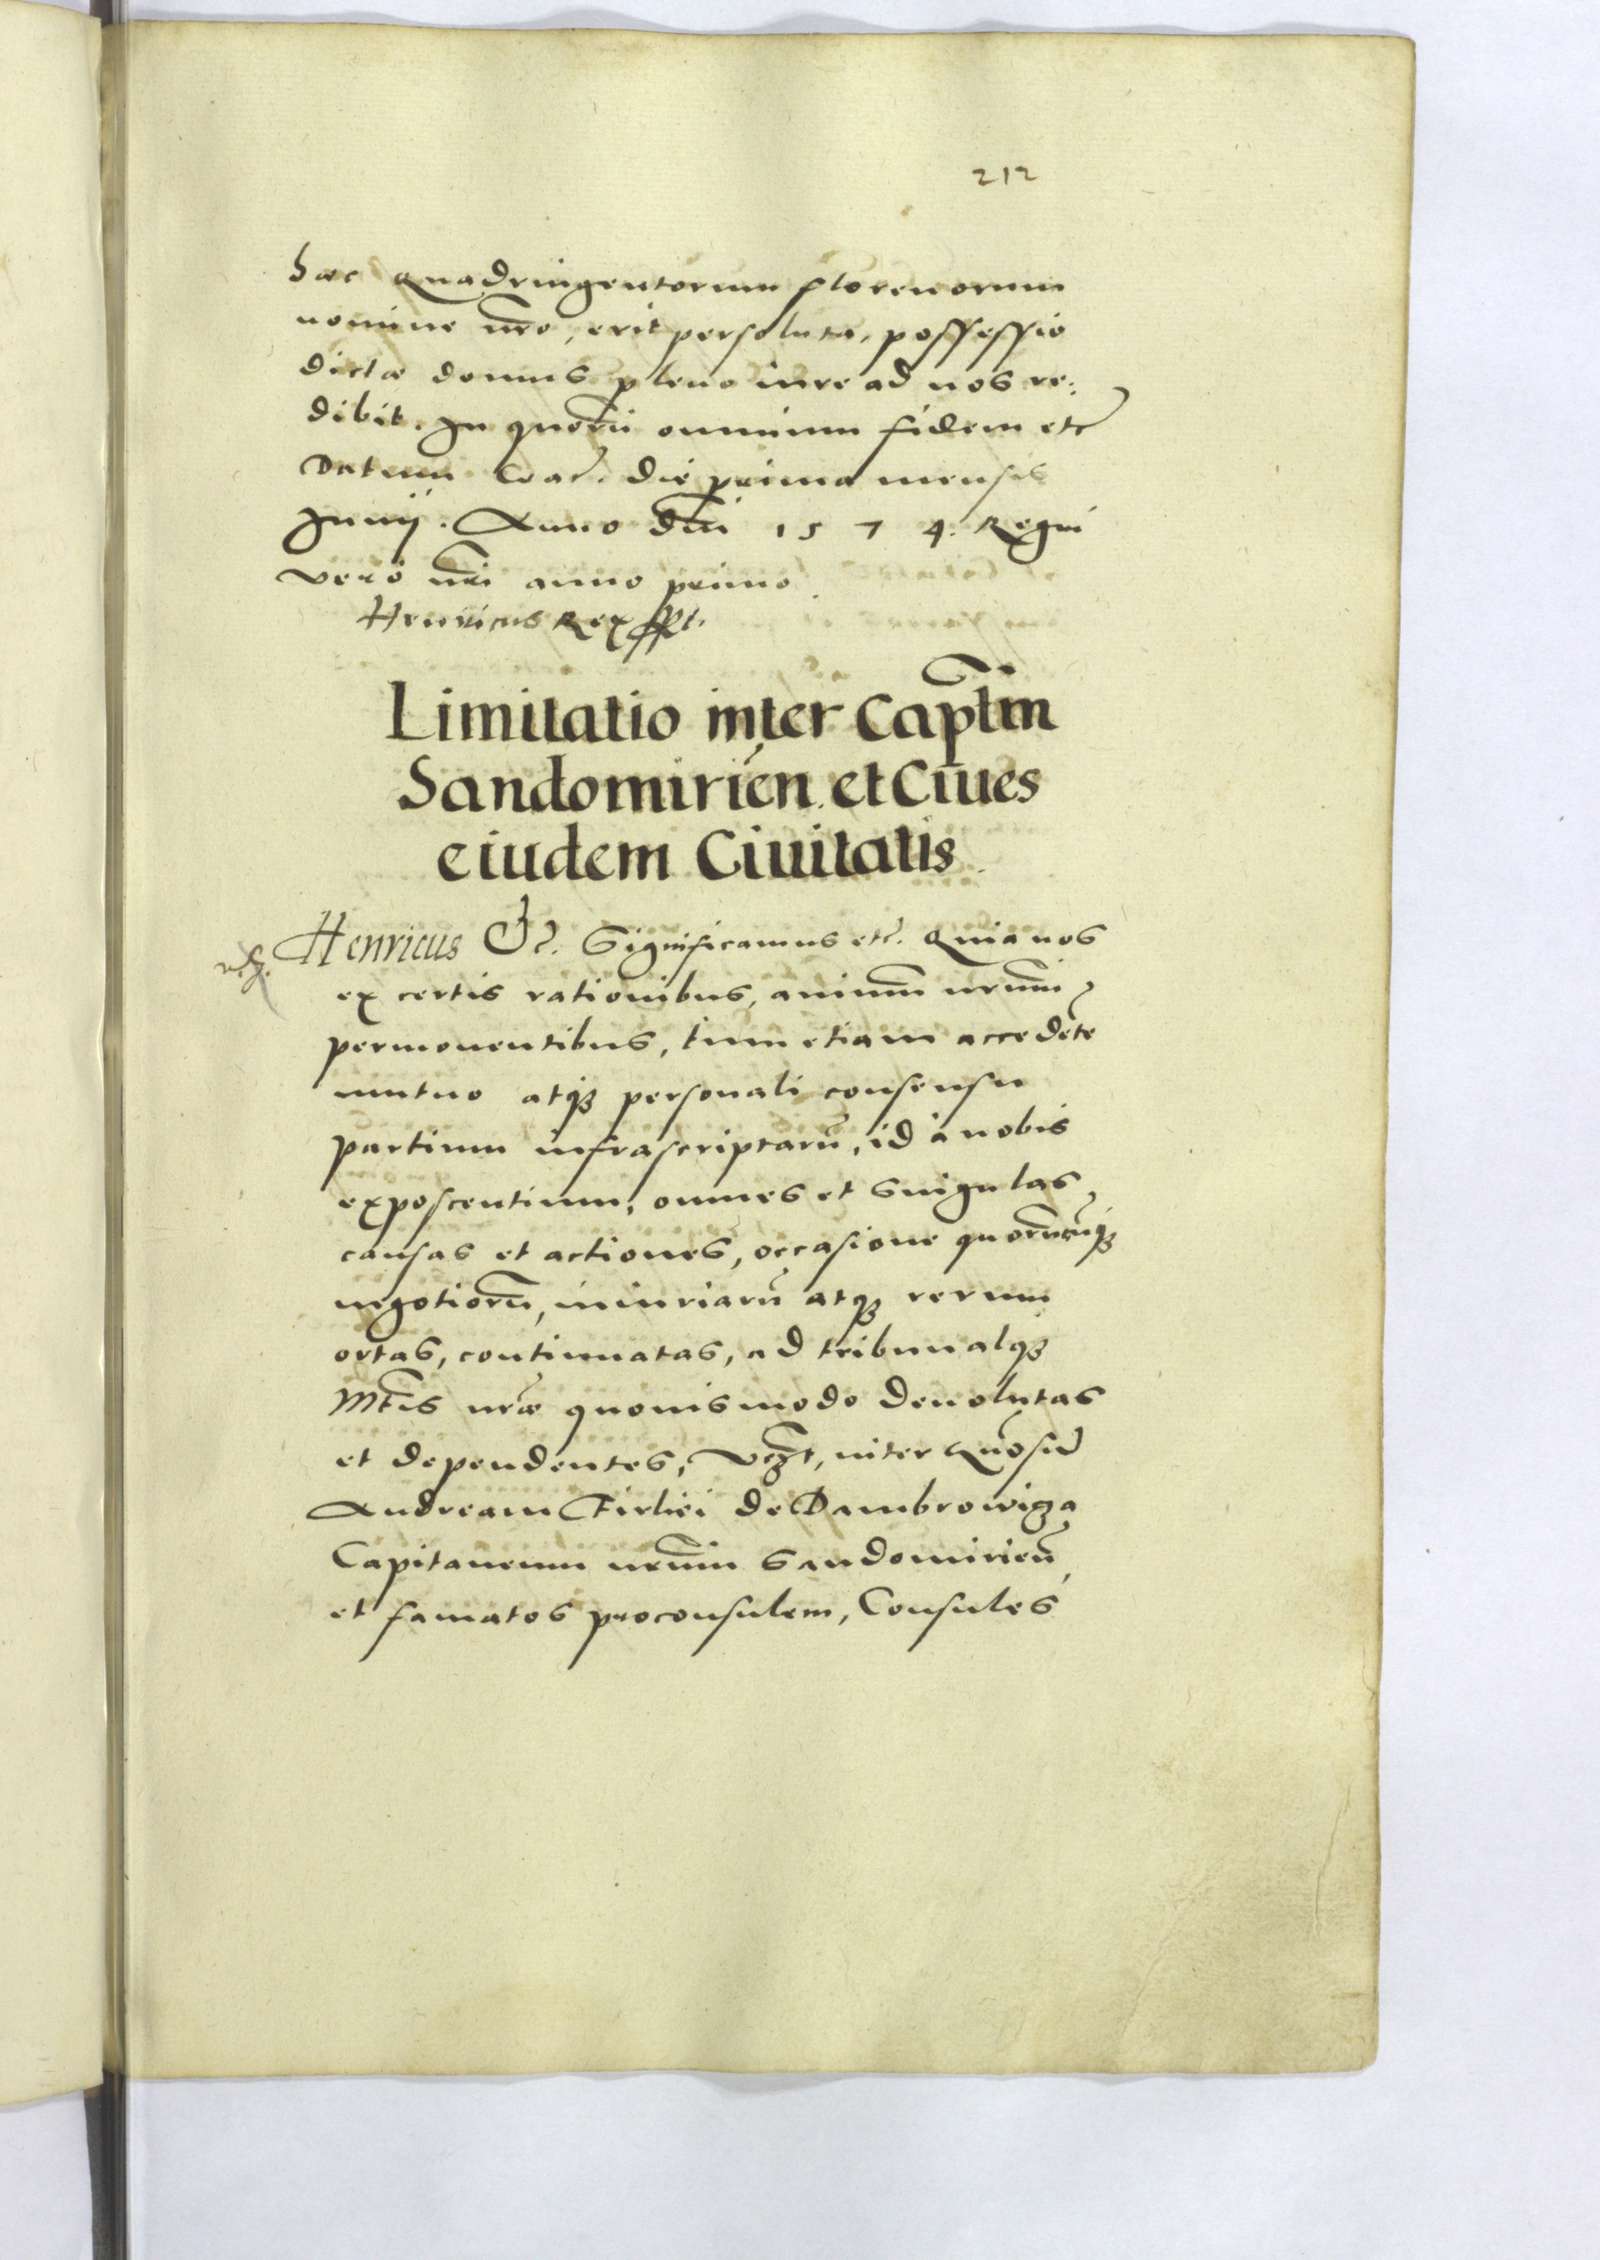 212
haec quadringentorum florenorum
nomine nrõ, erit persoluta, possessio
dictae domus pleno iure ad nos re:
dibit. In quorũ omnium fidem etc
Datum Crac. die prima mensis
Junij. Anno dñi 1574. Regni
vero nrĩ anno primo
Henricus Rex sspt.
Limitatio inter Captm̃
Sandomirien̄. et Ciues
eiudem Ciuitatis
Henricus &c. Significamus etc. Quia nos
ex certis rationibus, animum nrũm
permouentibus, tum etiam accedẽte
mutuo atq₃ personali consensu
partium infrascriptarũ, id à nobis
exposcentium, omnes et singulas
causas et actiones, occasione quorũcũq₃
negotiorũ, iniuriarũ atq₃ rerum
ortas, continuatas, ad tribunalq₃
Mtĩs nrãe quouis modo deuolutas
et dependentes, vꝫt, inter Gñosũ
Andream Firlei de Dambrowiza
Capitaneum nrũm Sandomirieñ,
et famatos proconsulem, Consules